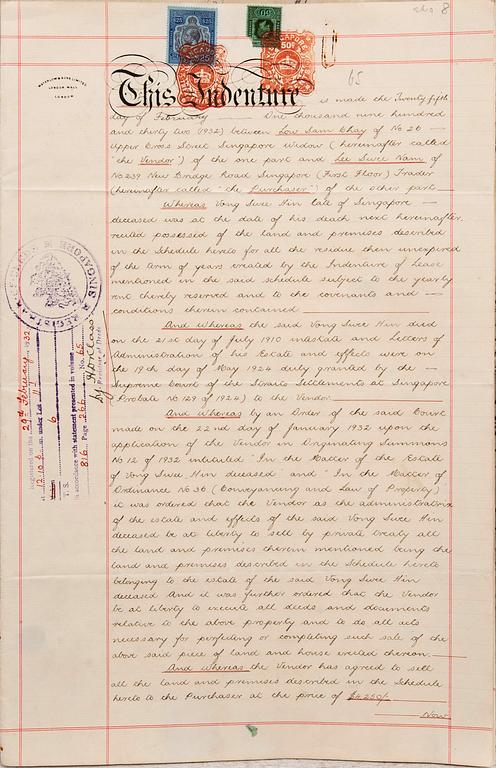 8
65
WATERLOW & SONS LIMITED
LONDON WALL
LONDON
SINGAPORE
$25
SINGAPORE
50c
This Indenture is made the Twenty fifth
day of February One thousand nine hundred
and thirty two (1932) between Low Sam Chay of No 26
Upper Cross Street Singapore Widow (hereinafter called
"the Vendor") of the one part and Lee Swee Nam of
No 239 New Bridge Road Singapore (First Floor) Trader
(hereinafter called "the Purchaser") of the other part
Whereas Vong Swee Hin late of Singapore
deceased was at the date of his death next hereinafter
recited possessed of the land and premises described
in the Schedule hereto for all the residue then unexpired
of the term of years created by the Indenture of Lease
mentioned in the said schedule subject to the yearly
rent thereby reserved and to the covenants and
conditions therein contained
And Whereas the said Vong Swee Hin died
on the 21st day of July 1910 intestate and Letters of
Administration of his Estate and effects were on
the 19th day of May 1924 duly granted by the
Supreme Court of the Straits Settlements at Singapore
(Probate No 129 of 1924) to the Vendor
And Whereas by an Order of the said Court
made on the 22nd day of January 1932 upon the
application of the Vendor in Originating Summons
No 12 of 1932 intituled "In the Matter of the Estate
of Vong Swee Hin deceased" and "In the Matter of
Ordinance No 36 (Conveyancing and Law of Property)"
it was ordered that the Vendor as the administratrix
of the estate and effects of the said Vong Swee Hin
deceased be at liberty to sell by private treaty all
the land and premises therein mentioned being the
land and premises described in the Schedule hereto
belonging to the estate of the said Vong Swee Hin
deceased And it was further ordered that the Vendor
be at liberty to execute all deeds and documents
relative to the above property and to do all acts
necessary for perfecting or completing such sale of the
above said piece of land and house erected thereon
And whereas the Vendor has agreed to sell
all the land and premises described in the Schedule
hereto to the Purchaser at the price of $4,250/-
Now
REGISTRAR OF DEEDS SINGAPORE
Registered on the 29th February 1932
at 12.10 p.m. under Lot 117
6
T. S.
in accordance with statement presented in volume
816 Page 266 No. 65
Registrar of Deeds